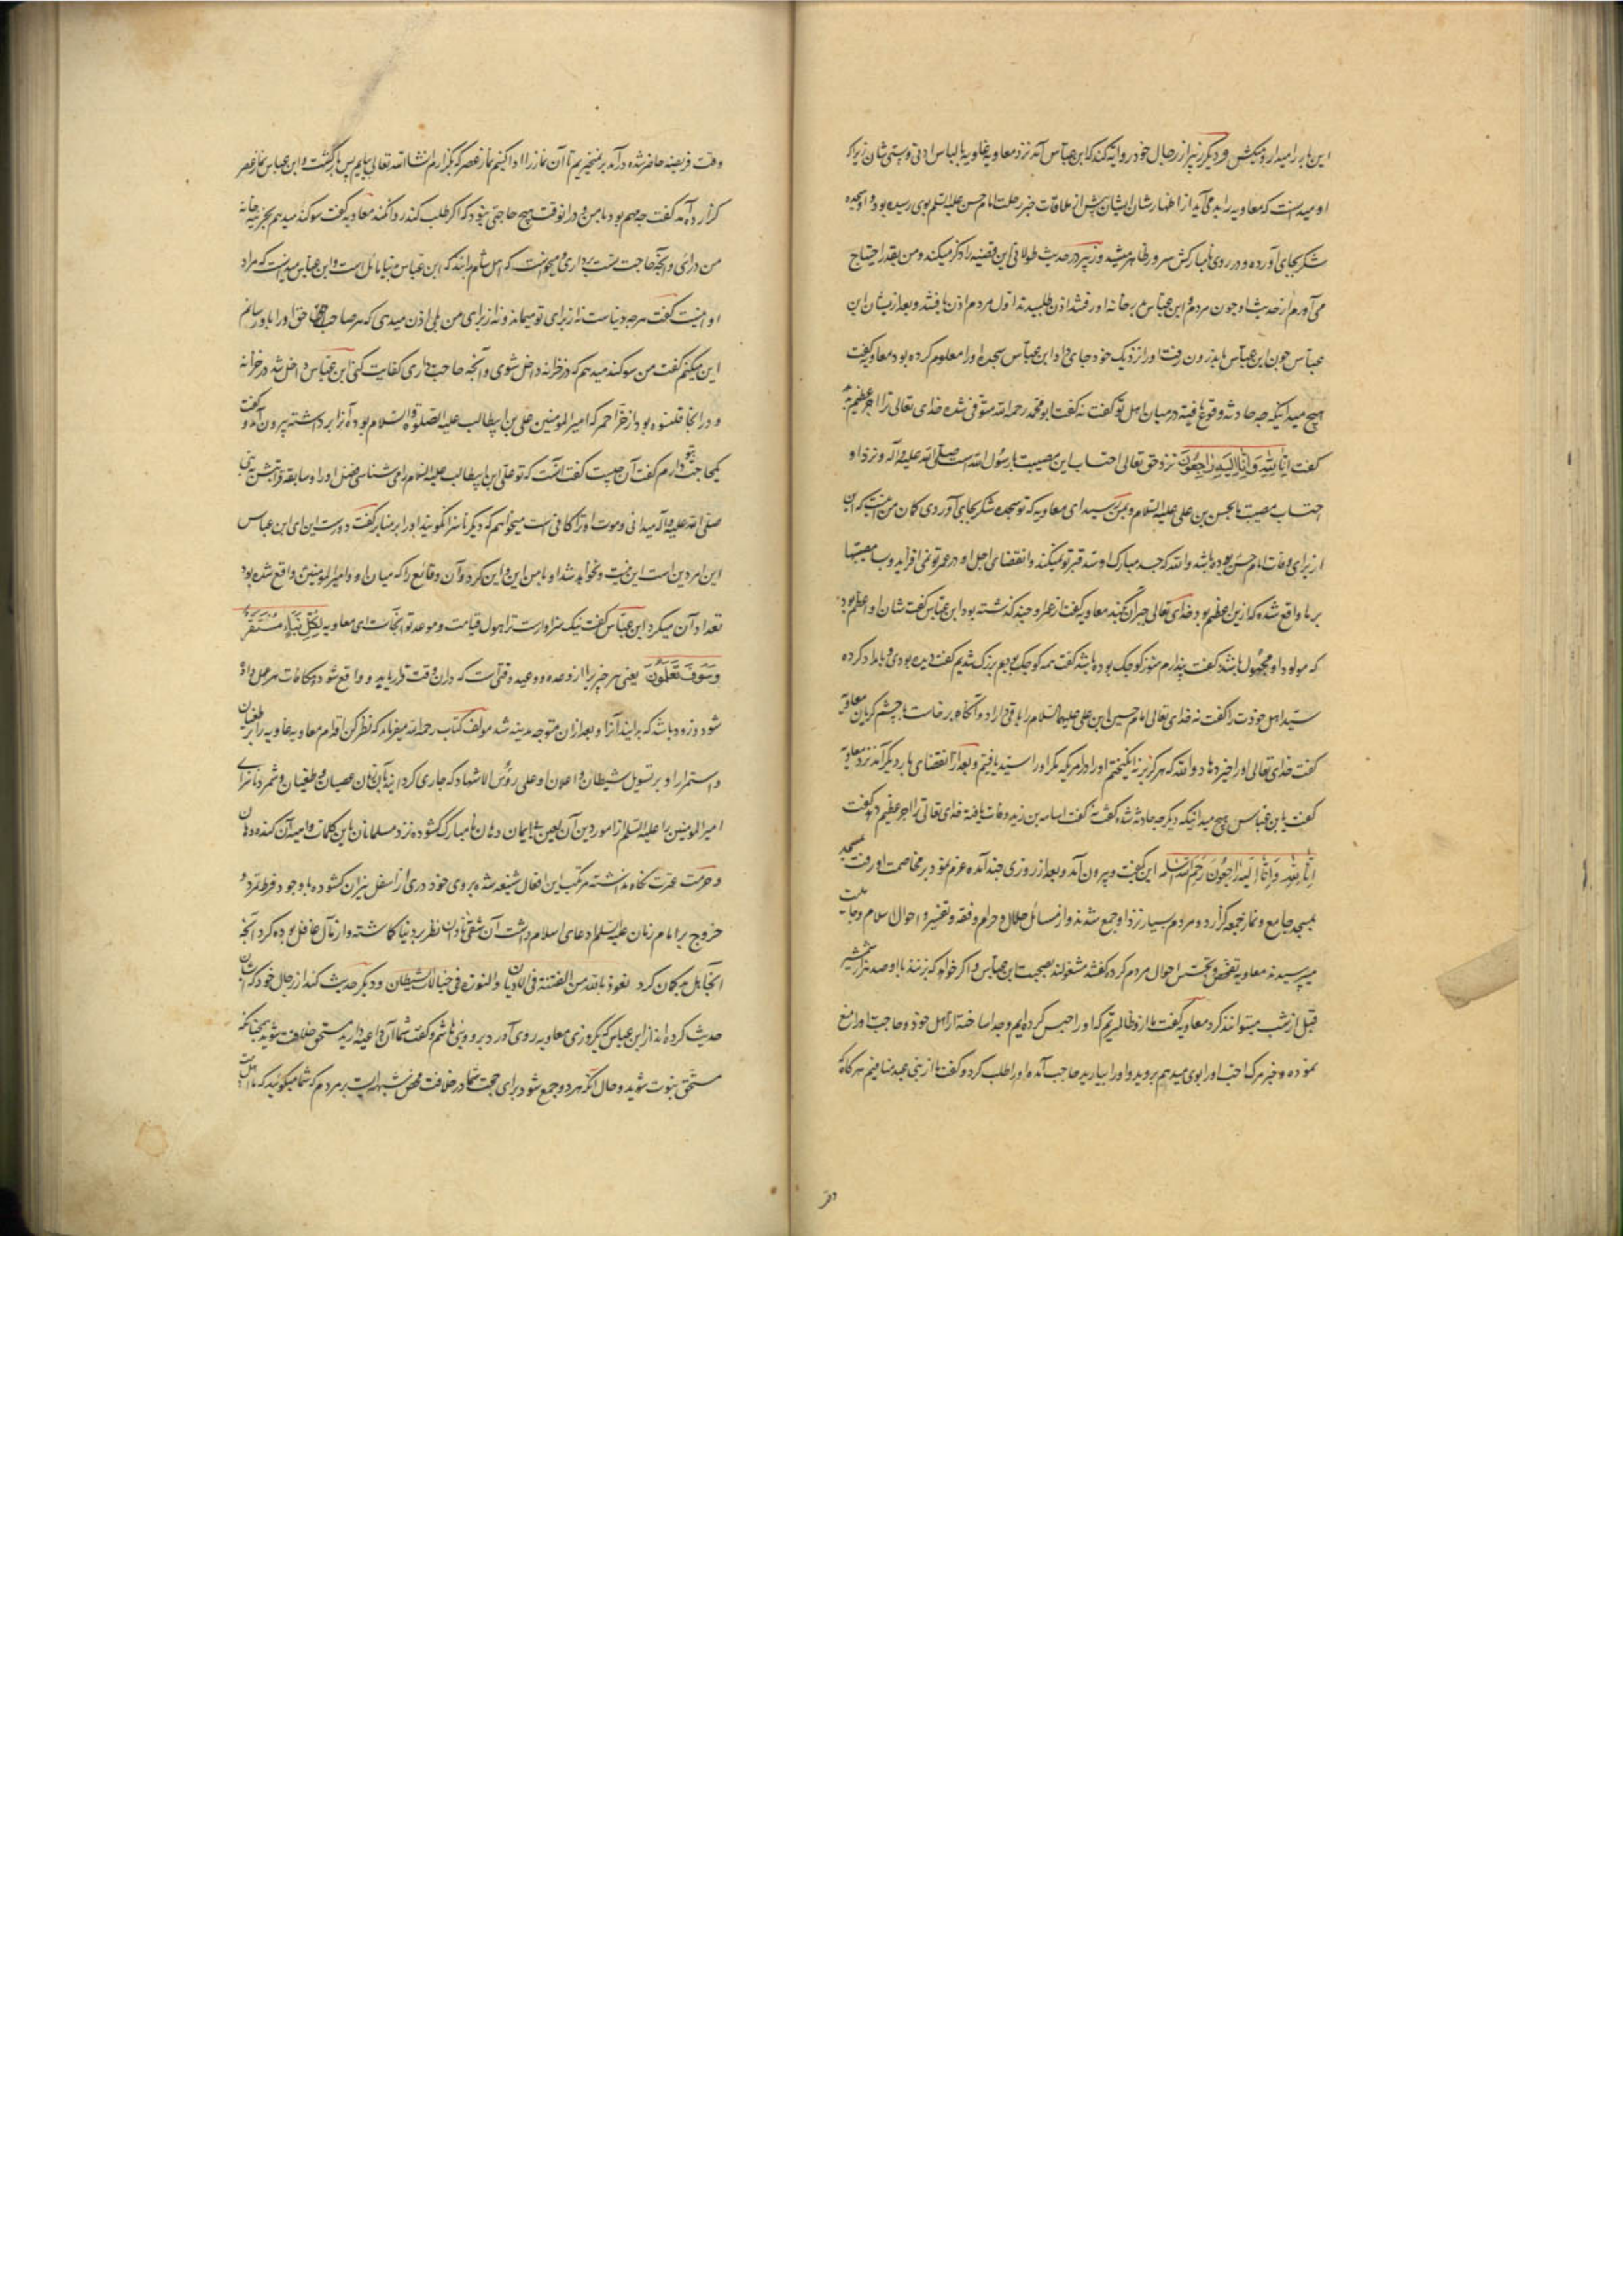 این بار را میدار و میکش و دیگر زبیر از رجال خود روایة کند که ابن عباس آمد نزد معاویه
او میدانست که معاویه را بد می آید از اظهار شان ایشان پیش از ملاقات خبر رحلت امام حسن علیه السلم بوی رسیده بود و او سجده
شکر بجای آورده و در روی نامبارکش سرور ظاهر میشد و زبیر در حدیث طولانی این قضیه را ذکر میکند و من بقدر احتیاج
می آورم از حدیث او چون مردم و ابن عباس بر خانه او رفتند اذن طلبیدند اول مردم اذن یافتند و بعد از یشان ابن
عباس چون ابن عباس باندرون رفت او را نزدیک خود جای داد ابن عباس سجده او را معلوم کرده بود معاویه گفت
هیچ میدانیکه چه حادثه وقوع یافته در میان اهل تو گفت نه گفت ابو محمد رحمه الله متوفی شده خدای تعالی ترا اجر عظیم دهد
گفت انا لله وانا الیه راجعون نزد حق تعالی احتساب این مصیبت با رسول الله است صلی الله علیه وآله و نزد او
احتساب مصیبت ما بحسن بن علی علیه السلام و بمن رسید ای معاویه که تو سجده شکر بجای آوردی کان من آنست که آن
از برای وفات امام حسن بوده باشد والله که جسد مبارک او سد قبر تو نمیکند و انقضای اجل او در عمر تو نمی افزاید و بسا مصیبتها
بر ما واقع شده که ازین اعظم بود خدای تعالی جبر آن کند معاویه گفت از عمر او چند گذشته بود ابن عباس گفت شان او اعظم بود
که مولود او مجهول باشد گفت پندارم هنوز کوچک بوده باشد گفت همه کوچک بودیم بزرگ شدیم گفت دیده بودی و بامداد کرده
سید اهل خودت را گفت نه خدای تعالی امام حسین ابن علی علیهما السلام را باقی دارد و آنگاه برخاست با چشم گریان معاویه
گفت خدای تعالی او را خیر دهاد والله که هرگز بر نه انگیختیم او را در امریکه مکر او را سید یافتیم و بعد از انقضای بار دیگر آمد نزد معاویة
گفت یا ابن عباس هیچ میدانیکه دیگر چه حادثه شده گفت نه گفت اسامه بن زید وفات یافته خدای تعالی ترا اجر عظیم دهد گفت
انا لله وانا الیه راجعون رحم الله اسامه این گفت و بیرون آمد و بعد از روزی چند آمده عزم نمود بر مخاصمت او رفت مسجد
بمسجد جامع و نماز جمعه گزارد و مردم بسیار نزد او جمع شدند و از مسائل حلال و حرام و فقه و تفسیر و احوال اسلام و جاهلیت
میپرسیدند معاویه تفحص و تجسس احوال مردم کرده گفتند مشغولند بصحبت ابن عباس و اگر خواهد که بزنند با او صد هزار شمشیر
قبل از شب میتوانند کرد معاویه گفت ما ازو ظالمتریم که او را حبس کرده ایم و جدا ساخته از اهل خود و حاجت او را منع
نموده و خبر مرگ احب او را بوی میدهیم بروید و او را بیارید حاجب آمده او را طلب کرد و گفت ما از بنی عبد منافیم هرگاه که
وقت
وقت فریضه حاضر شده درآمد بر نمیخیزیم تا آن نماز را ادا کنیم نماز عصر که بگزارم انشاالله تعالی بیایم پس بازگشت و ابن عباس نماز عصر
گزارده آمد گفت چه مهم بود با من و در آنوقت هیچ حاجتی نبود که اگر طلب کند رد آن کند معاویه گفت سوگند میدهم بخزینه خانه
من درآی و آنچه حاجت تست برداری و میخواست که اهل شام بدانند که ابن عباس بدنیا مایل است و ابن عباس میدانست که مراد
او اینست گفت هرچه در دنیاست نه از برای تو میماند و نه از برای من بلی اذن میدهی که هر صاحب حق حق او را باو رسانم
این میکنم گفت من سوگند میدهم که در خزانه داخل شوی و آنچه حاجت داری کفایت کنی ابن عباس داخل شد در خزانه
و در آنجا قلنسوه بود از خز احمر که امیرالمومنین علی بن ابیطالب علیه الصلوة والسلام بوده آنرا برداشته بیرون آمد و گفت
یکحاجت بتو دارم گفت آن چیست گفت آنست که تو علی ابن ابیطالب علیه السلام را می شناسی فضل او را و سابقه و قرابتش به نبی
صلی الله علیه وآله میدانی و موت او ترا کافی است میخواهم که دیگر ناسزا نگویند او را بر منابر گفت دورست این ای ابن عباس
این امر دین است این نیست و نخواهد شد او با من این و این کرد و آن وقایع را که میان او و امیرالمومنین واقع شده بود
تعداد آن میکرد ابن عباس گفت نیک سزاوارست ترا هول قیامت و موعد تو آنجاست ای معاویه لکل نباء مستقر
وسوف تعلمون یعنی هر خبر را از وعده و وعید وقتی است که در آن وقت قرار یابد و واقع شود و مکافات هر عمل داده
شود و زود باشد که بدانید آنرا و بعد از آن متوجه مدینه شد مولف کتاب رحمه الله میفرماید که نظر کن اقدام معاویه غاویه را بر طغیان
و استمرار او بر تسویل شیطان و اعلان او علی رؤس الاشهاد که جاری کردانید
امیرالمومنین را علیه السلم از امور دین آن لعین بی ایمان دهان نامبارک گشوده نزد مسلمانان باین کلمات
و حرمت عترت نگاه نداشته مرتکب این افعال شنیعه شده بروی خود دری از اسفل نیران گشوده با وجود فرط تمرد و
خروج بر امام زمان علیه السلم ادعای اسلام داشت آن شقی نادان نظر بر دنیا گماشته و از مآل غافل بوده کرد آنچه
آنجا بل بد گمان کرد نعوذ بالله من الفتنة فی الادیان و النوزه فی خیالات الشیطان و دیگر حدیث کند از رجال خود که ایشان
حدیث کرده اند از ابن عباس که یکروزی معاویه روی آورد بر و و بنی هاشم و گفت شما آن داعیه دارید مستحق خلافت شوید چنانکه
مستحق نبوت شوید و حال آنکه هر دو جمع شود برای حجت شما در خلافت محض شبهه است بر مردم که شما میگویید که ما اهل بیت